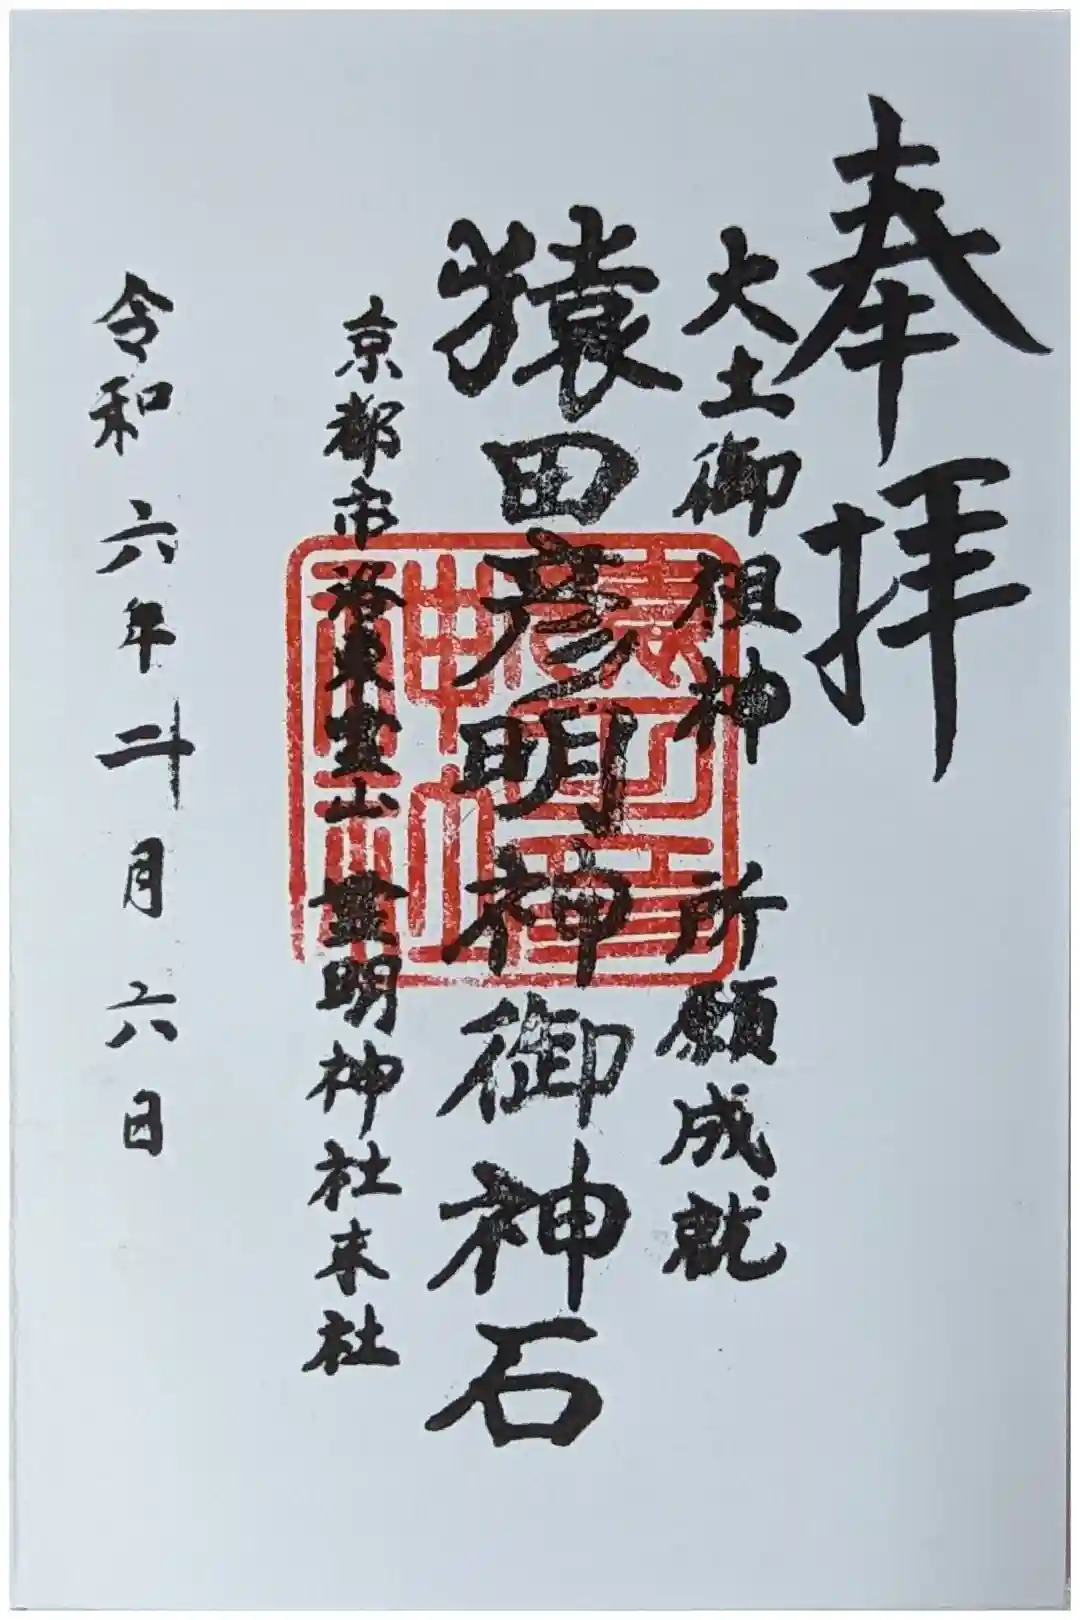 奉拝
大土御祖神 所願成就
猿田彦明神御神石
京都市洛東霊山 霊明神社末社
令和六年十二月六日
猿田彦
神社